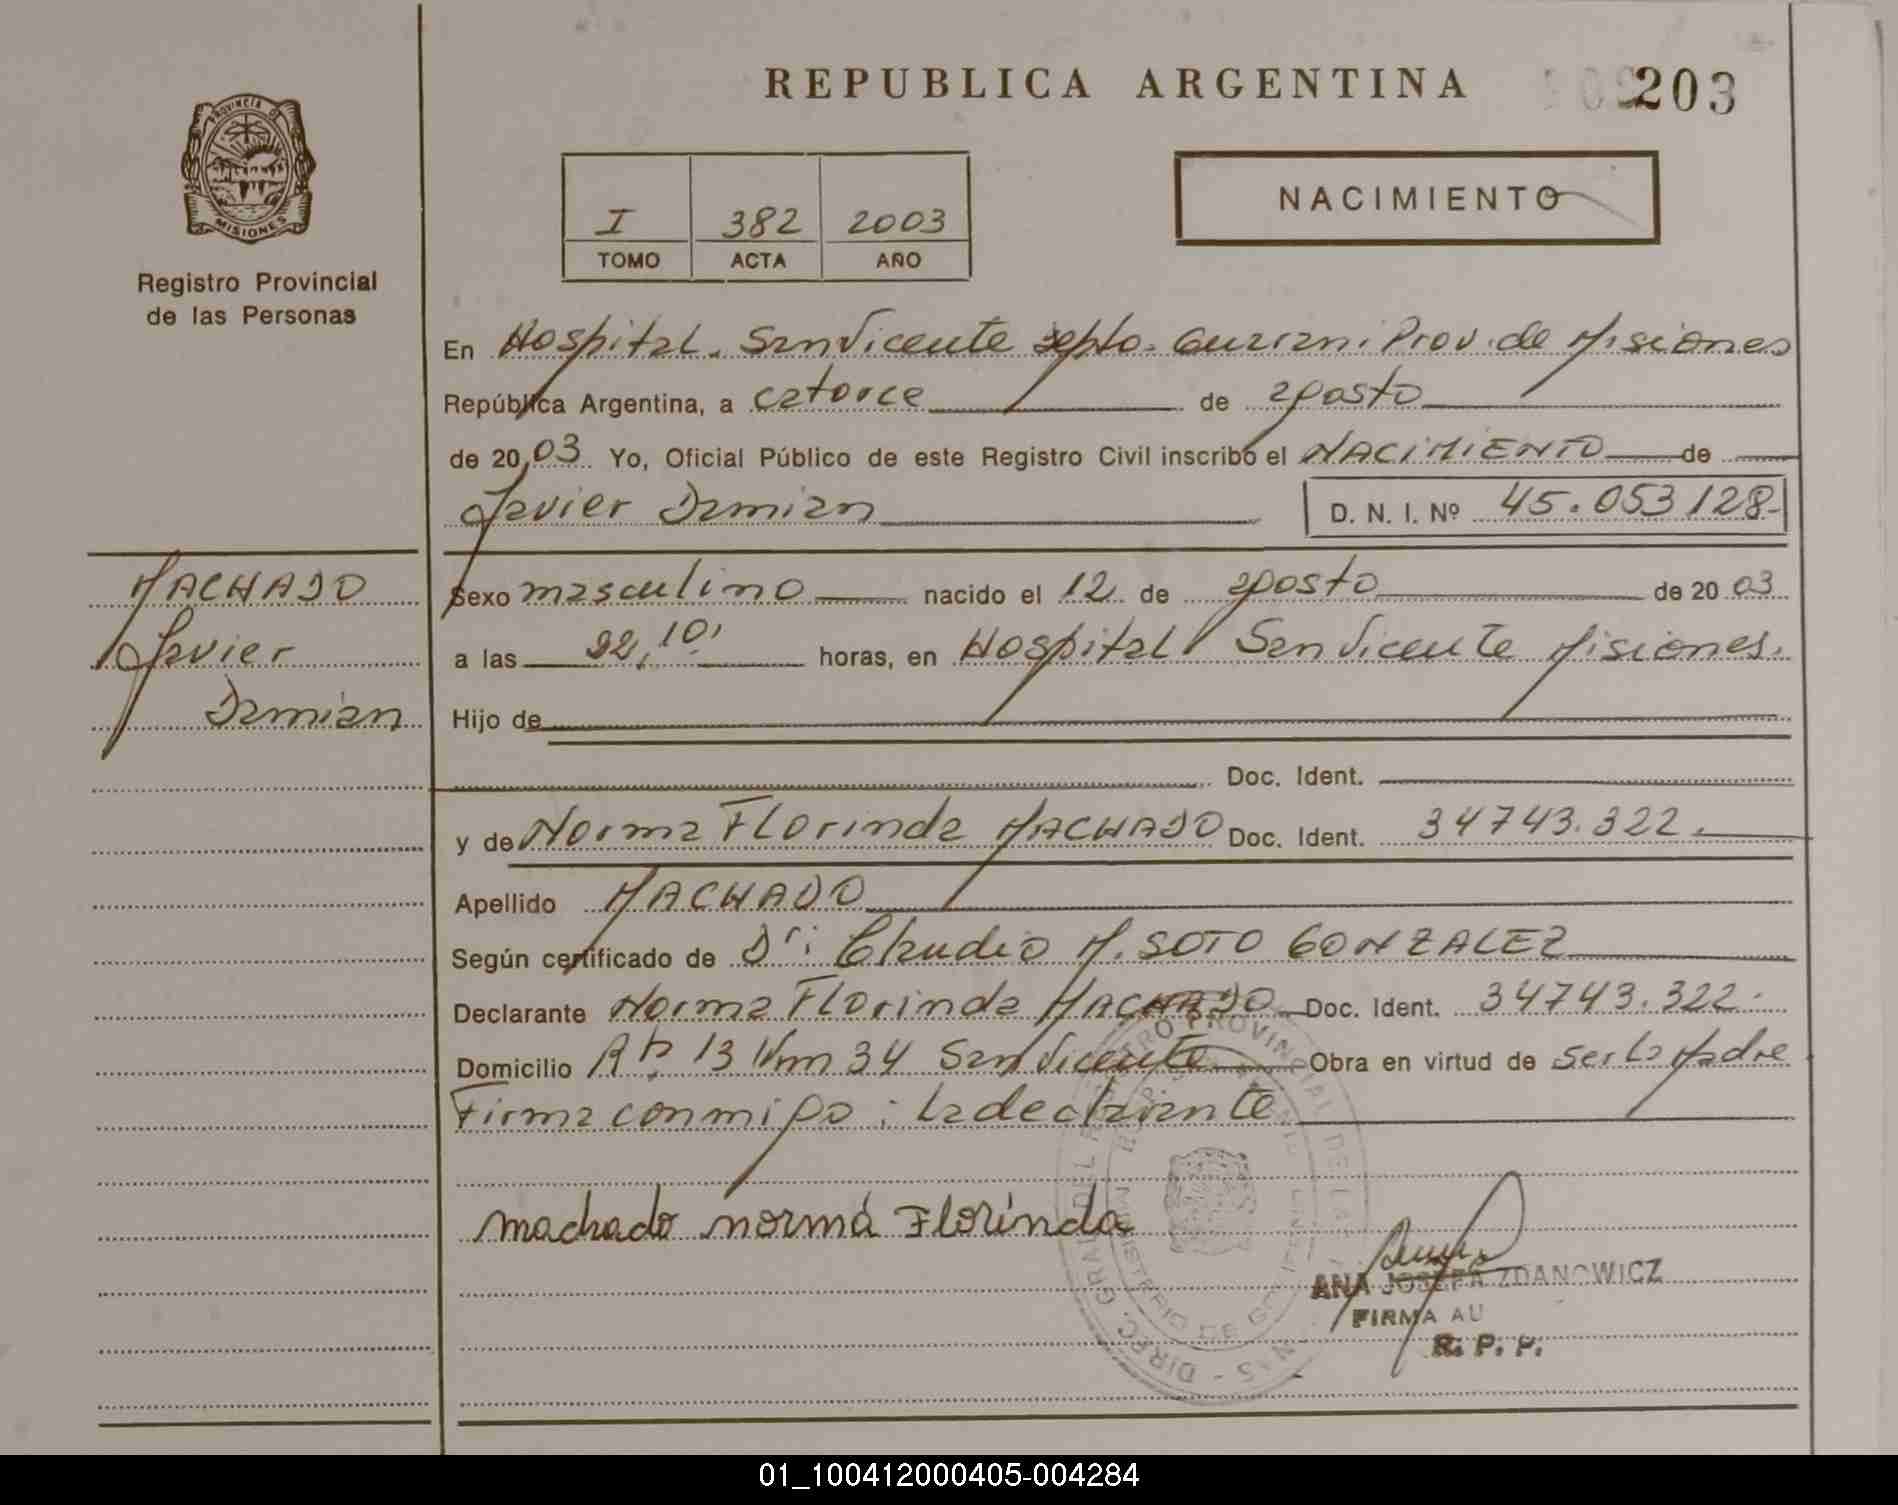 REPUBLICA ARGENTINA
203
PROVINCIA DE MISIONES
Registro Provincial
de las Personas
I 382 2003
TOMO ACTA AÑO
NACIMIENTO
En Hospital. San Vicente Depto. Guarani Prov. de Misiones
República Argentina, a catorce de agosto
de 2003 Yo, Oficial Público de este Registro Civil inscribo el NACIMIENTO de
Javier Damian
D. N. I. Nº 45.053128-
MACHADO
Javier
Damian
Sexo masculino nacido el 12 de agosto de 2003
a las 22,10 horas, en Hospital San Vicente Misiones.
Hijo de
Doc. Ident.
y de Norma Florinda MACHADO Doc. Ident. 34743.322.
Apellido MACHADO
Según certificado de Dr: Claudio M. SOTO GONZALEZ
Declarante Norma Florinda MACHADO Doc. Ident. 34743.322.
Domicilio Rta. 13 Km 34 San Vicente Obra en virtud de ser la Madre
Firma conmigo: la declarante
machado normá Florinda
ANA JOSEFA ZDANOWICZ
FIRMA AU
R. P. P.
01_100412000405-004284